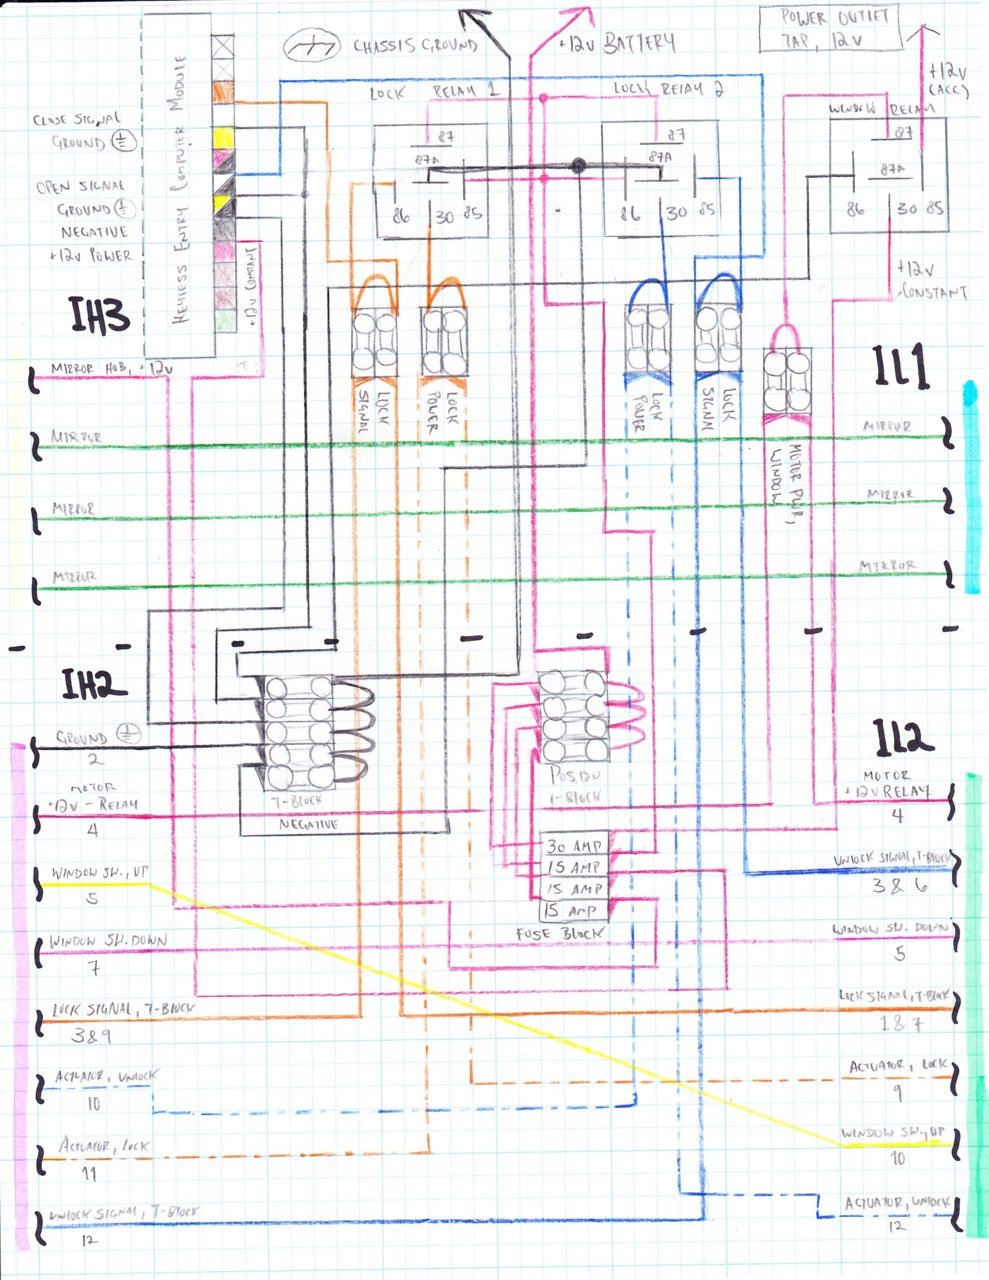 CHASSIS GROUND
+12V BATTERY
POWER OUTLET
TAP, 12V
+12V
(ACC)
LOCK RELAY 1
LOCK RELAY 2
WINDOW RELAY
KEYLESS ENTRY COMPUTER MODULE
CLOSE SIGNAL
GROUND
OPEN SIGNAL
GROUND
NEGATIVE
+12V POWER
+12V CONSTANT
87
87A
86
30
85
87
87A
86
30
85
87
87A
86
30
85
+12V
CONSTANT
IH3
IL1
MIRROR HUB, +12V
LOCK
SIGNAL
LOCK
POWER
LOCK
POWER
LOCK
SIGNAL
MOTOR PWR,
WINDOW
MIRROR
MIRROR
MIRROR
MIRROR
MIRROR
MIRROR
IH2
IL2
GROUND
2
MOTOR
+12V - RELAY
4
T-BLOCK
NEGATIVE
POS, 12V
T-BLOCK
MOTOR
+12V RELAY
4
30 AMP
15 AMP
15 AMP
15 AMP
FUSE BLOCK
WINDOW SW., UP
5
UNLOCK SIGNAL, T-BLOCK
3 & 6
WINDOW SW. DOWN
7
WINDOW SW. DOWN
5
LOCK SIGNAL, T-BLOCK
3&9
LOCK SIGNAL, T-BLOCK
1&7
ACTUATOR, UNLOCK
10
ACTUATOR, LOCK
9
ACTUATOR, LOCK
11
WINDOW SW., UP
10
UNLOCK SIGNAL, T-BLOCK
12
ACTUATOR, UNLOCK
12